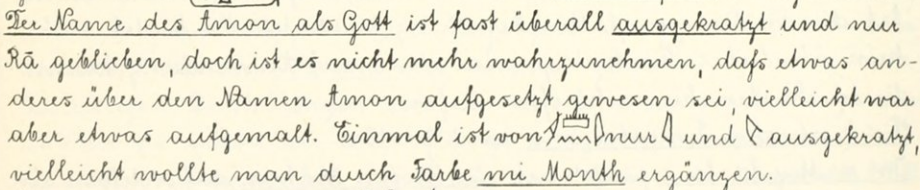 Der Name des Amon als Gott ist fast überall ausgekratzt und nur
Rā geblieben, doch ist es nicht mehr wahrzunehmen, daſs etwas an-
deres über den Namen Amon aufgesetzt gewesen sei, vielleicht war
aber etwas aufgemalt. Einmal ist von 𓇋𓏠𓈖𓇋 nur 𓇋 und 𓇋 ausgekratzt,
vielleicht wollte man durch Farbe mi Month ergänzen.